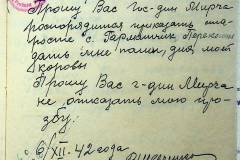 Прошу Вас гос-дин Мирча
распорядится приказать ста-
росте с. Гармотчик
дать мне паш, для моей
коровы
Прошу Вас г-дин Мирча
не отказать мою про-
зьбу.
6/XII-42 года